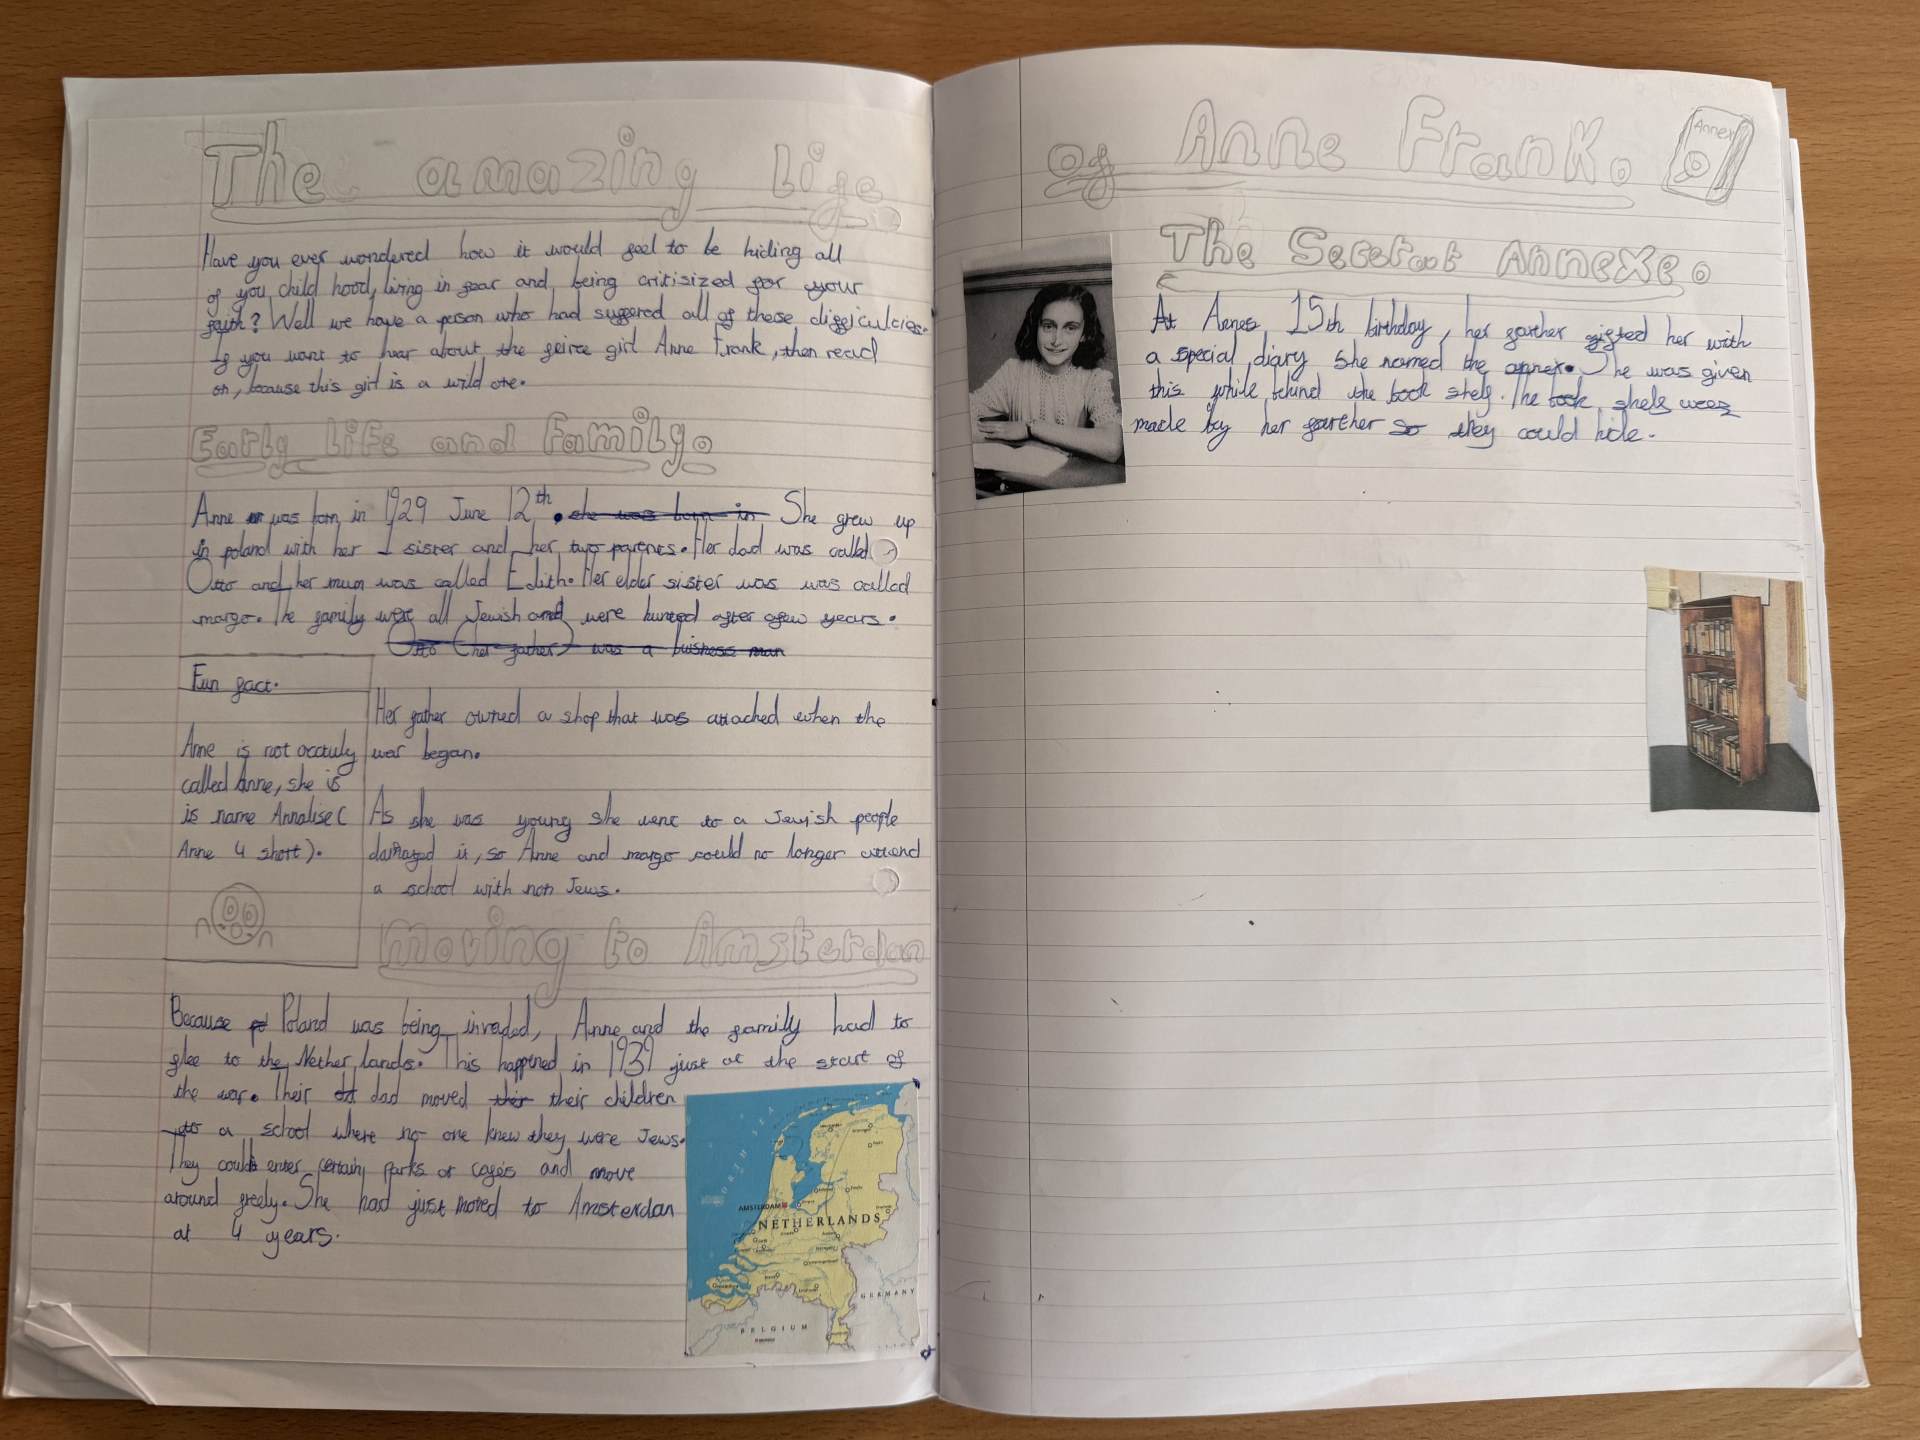 The amazing Life
Have you ever wondered how it would feel to be hiding all
of you child hood, living in fear and being critisized for your
faith? Well we have a person who had suffered all of these difficulcies.
If you want to hear about the feirce girl Anne Frank, then read
on, because this girl is a wild one.
Early Life and Family.
Anne was born in 1929 June 12th. she was born in She grew up
in poland with her 1 sister and her two parents. Her dad was called
Otto and her mum was called Edith. Her elder sister was was called
margo. The family were all Jewish and were hunted after afew years.
Otto (her father) was a buisness man
Fun fact.
Anne is not acctuly
called Anne, she is
is name Annalise (
Anne 4 short).
Her father owned a shop that was attached when the
war began.
As she was young she went to a Jewish people
damaged it, so Anne and margo could no longer attend
a school with non Jews.
Moving to Amsterdan
Because Poland was being invaded, Anne and the family had to
flee to the Nether lands. This happened in 1939 just at the start of
the war. Their dad moved their children
to a school where no one knew they were Jews.
They could enter certain parks or cafés and move
around freely. She had just moved to Amsterdan
at 4 years.
NORTH SEA
AMSTERDAM
NETHERLANDS
GERMANY
BELGIUM
of Anne Frank.
Annex
The Secetrat Annexe.
At Annes 15th birthday, her farther gifted her with
a special diary she named the annex. She was given
this while behind the book shelf. The book shelf was
made by her farther so they could hide.